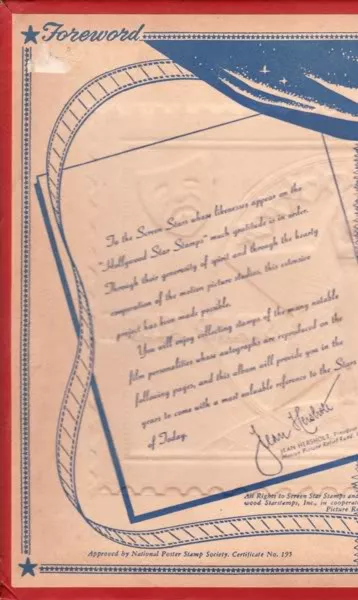 Foreword
To the Screen Stars whose likenesses appear on the
"Hollywood Star Stamps" much gratitude is in order.
Through their generosity of spirit and through the hearty
cooperation of the motion picture studios, this extensive
project has been made possible.
You will enjoy collecting stamps of the many notable
film personalities whose autographs are reproduced on the
following pages, and this album will provide you in the
years to come with a most valuable reference to the Stars
of Today.
Jean Hersholt
JEAN HERSHOLT, President
Motion Picture Relief Fund,
All Rights to Screen Star Stamps and
wood Starstamps, Inc., in cooperat
Picture Re
Approved by National Poster Stamp Society. Certificate No. 195